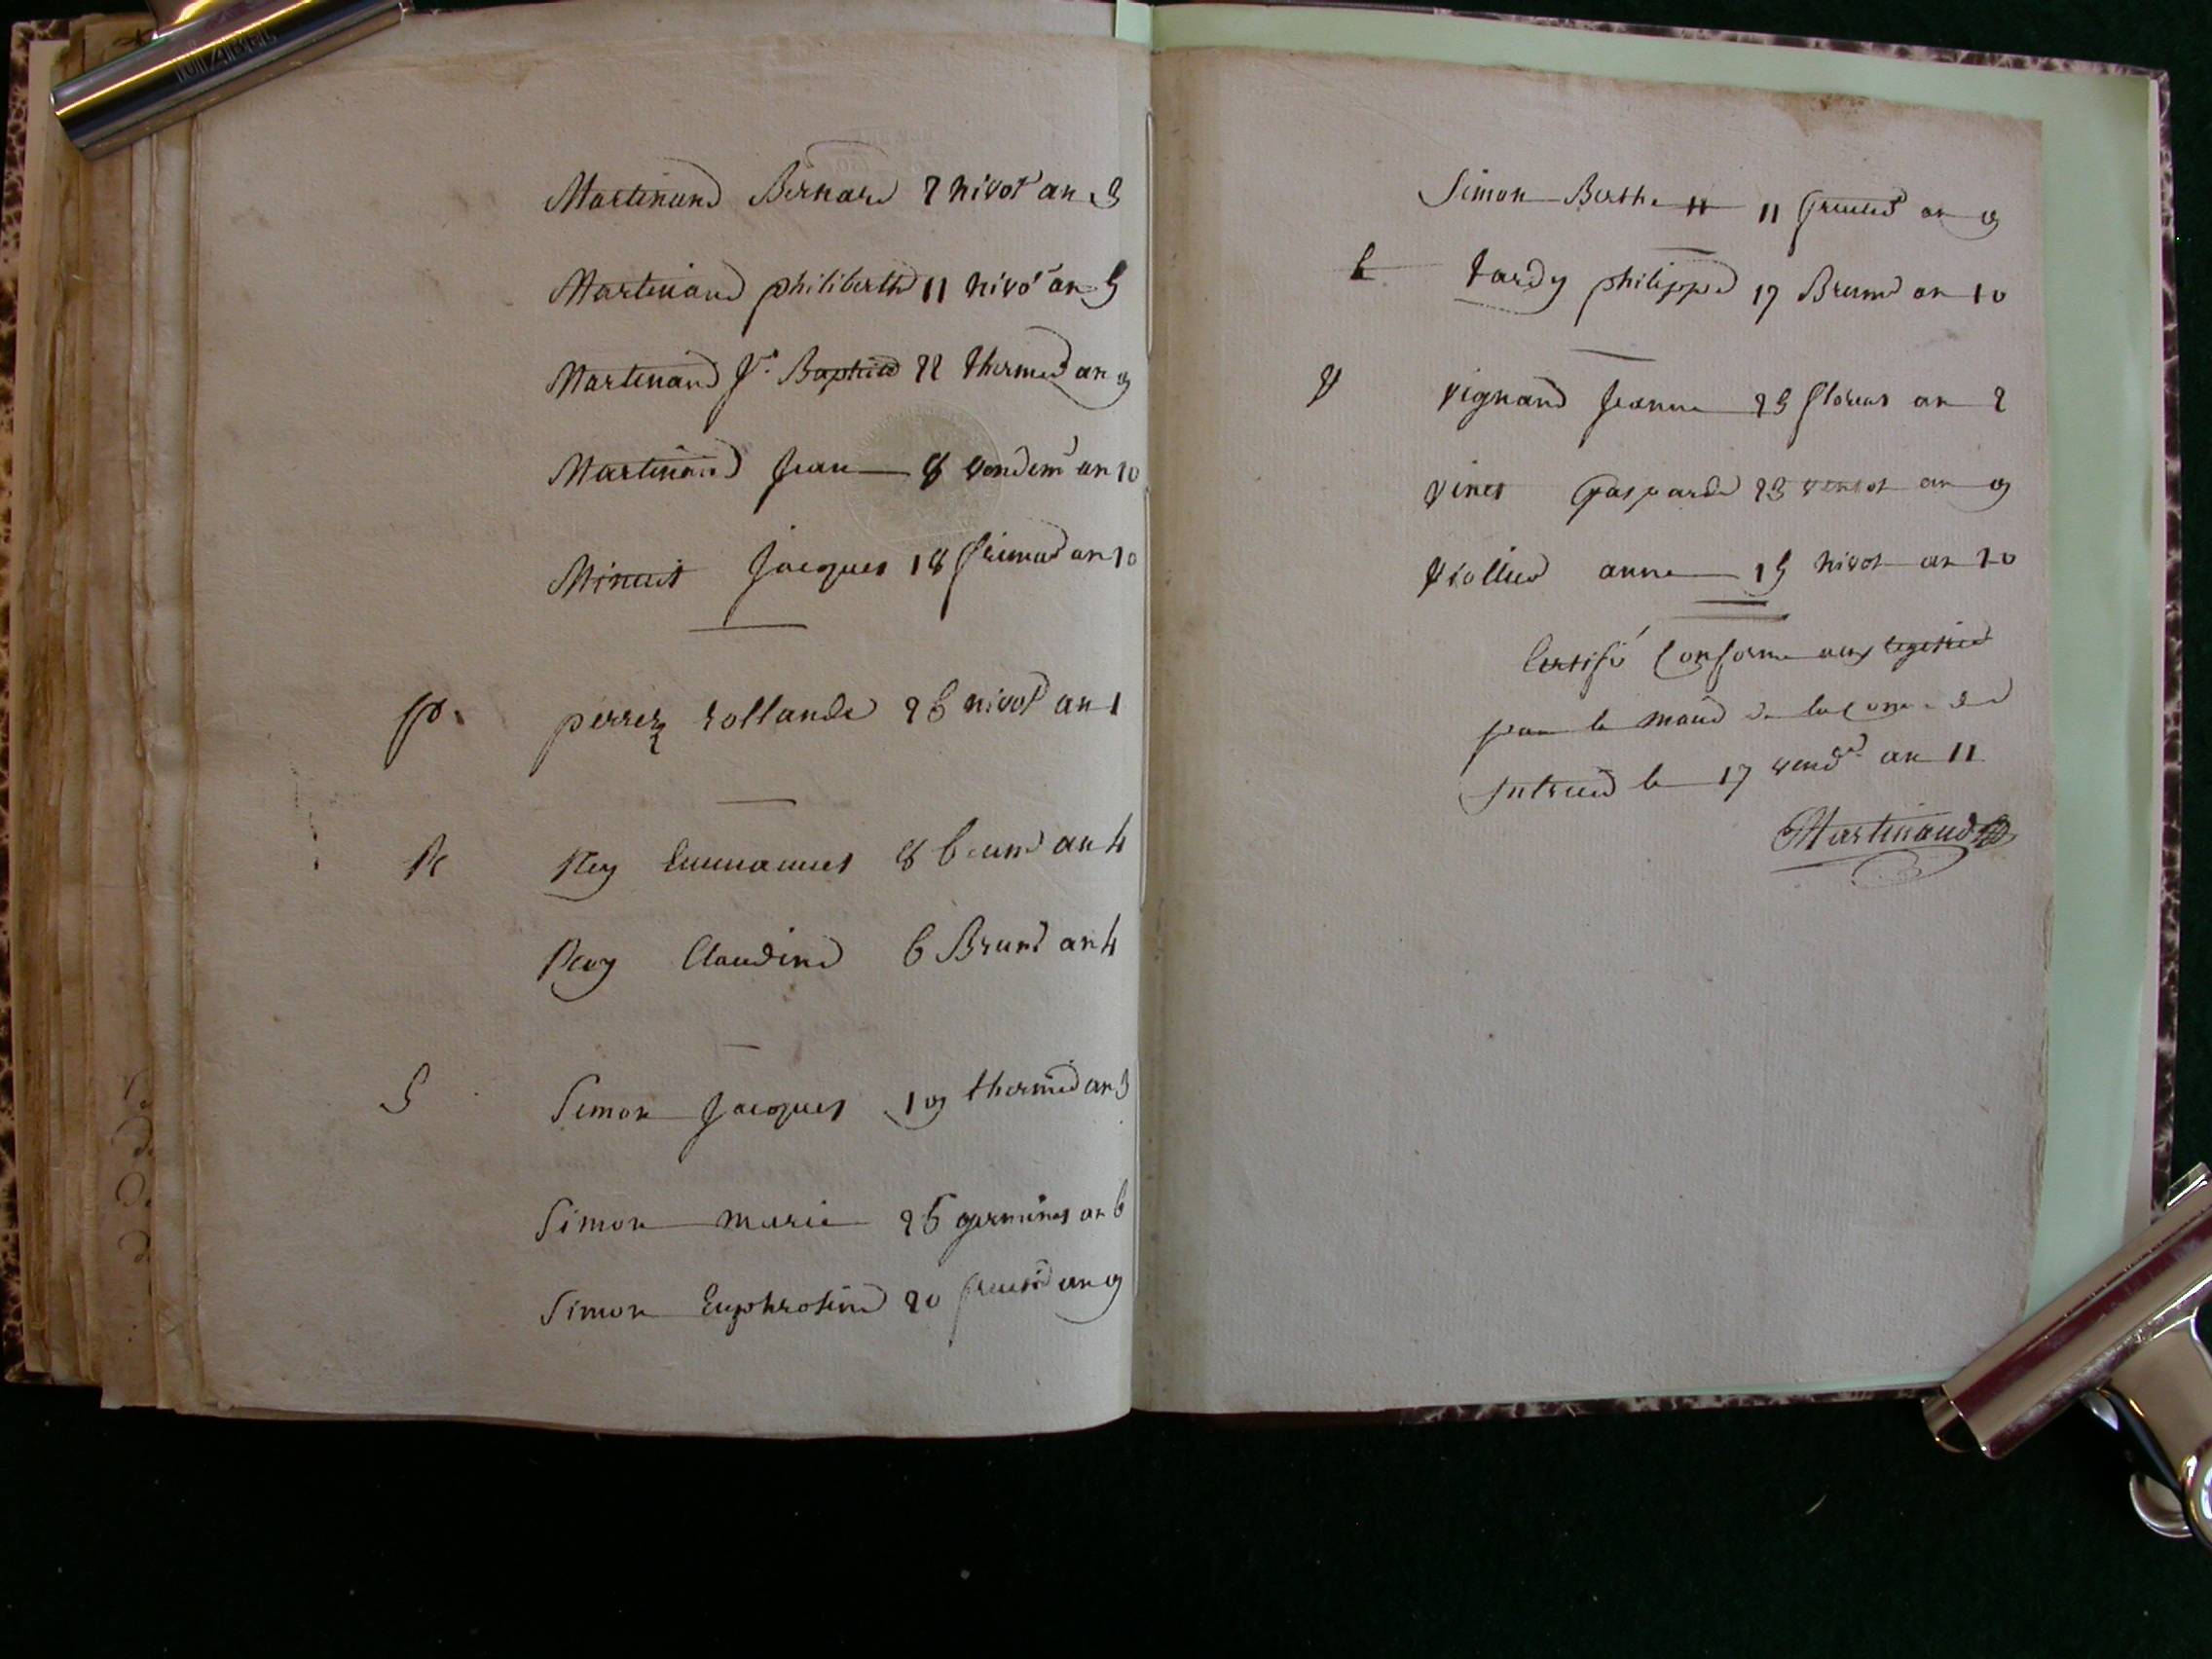 Martinand Bernard 2 nivos an 3
Martinand philiberthe 11 nivo an 5
Martinand Jn. Baptiste 22 thermid an 9
Martinand Jean 8 vendem an 10
Minuit Jacques 18 frimad an 10
p. perrez rollande 26 nivos an 1
R Rey Emmanuel 8 brum an 4
Rey Claudine 6 Brum an 4
S Simon Jacques 19 thermid an 3
Simon marie 25 germinal an 6
Simon Euphrosine 20 fructid an 9
Simon Berthe 11 11 fructid an 9
t tardy philippe 17 Brum an 10
V vignand Jeanne 23 floreal an 2
vinet gasparde 23 ventos an 9
viollier anne 15 nivos an 10
Certifié Conforme aux registres
par le maire de la Comne de
le 17 vendre an 11
Martinand